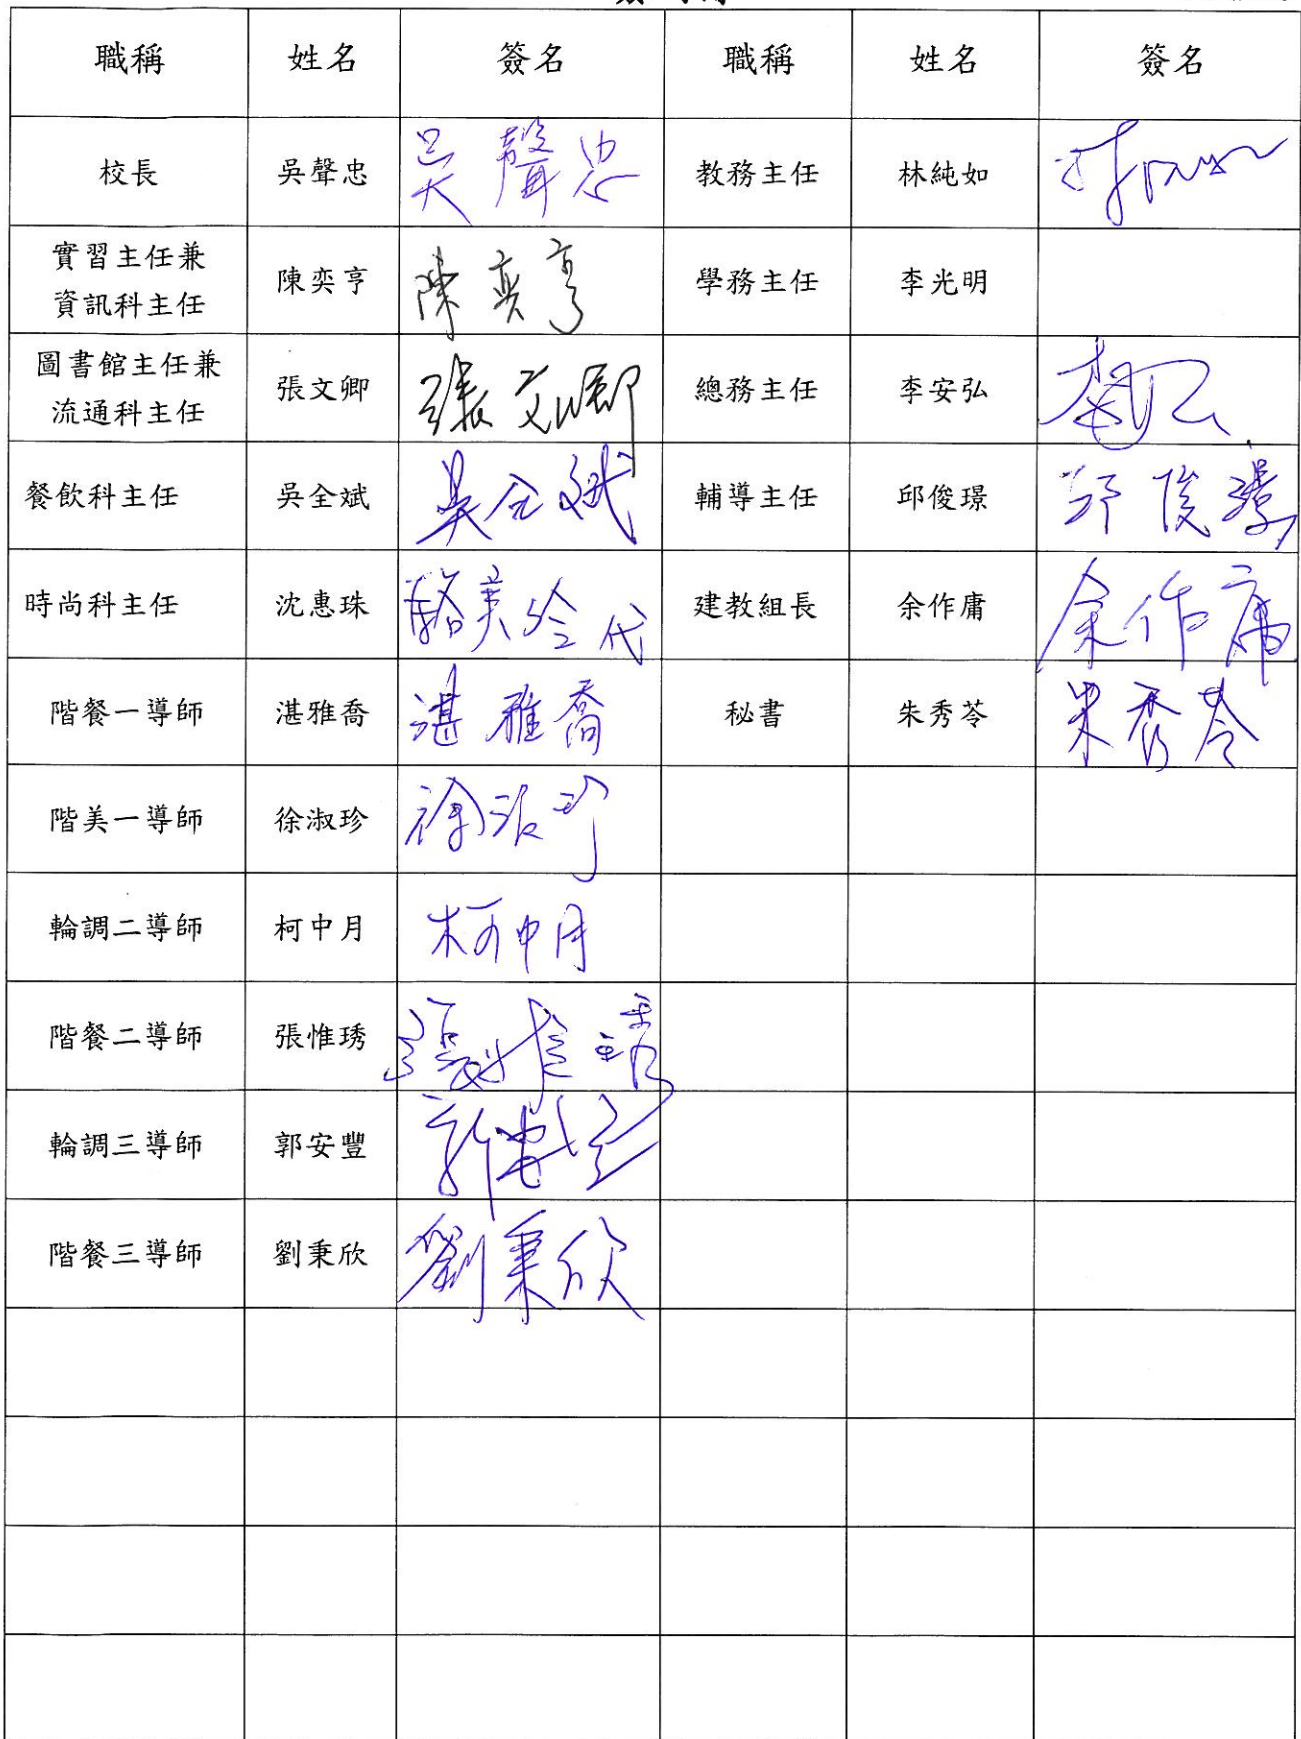 職稱 姓名 簽名 職稱 姓名 簽名
校長 吳聲忠 吳聲忠 教務主任 林純如
實習主任兼
資訊科主任 陳奕亨 陳奕亨 學務主任 李光明
圖書館主任兼
流通科主任 張文卿 張文卿 總務主任 李安弘
餐飲科主任 吳全斌 吳全斌 輔導主任 邱俊璟 邱俊璟
時尚科主任 沈惠珠 代 建教組長 余作庸 余作庸
階餐一導師 湛雅喬 湛雅喬 秘書 朱秀苓 朱秀苓
階美一導師 徐淑珍 徐淑珍
輪調二導師 柯中月 柯中月
階餐二導師 張惟琇 張惟琇
輪調三導師 郭安豐
階餐三導師 劉秉欣 劉秉欣